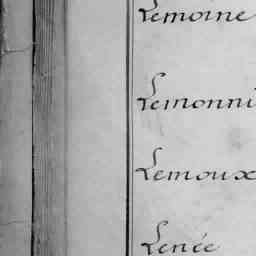 Lemoine
Lemonni
Lemoux
Lenée